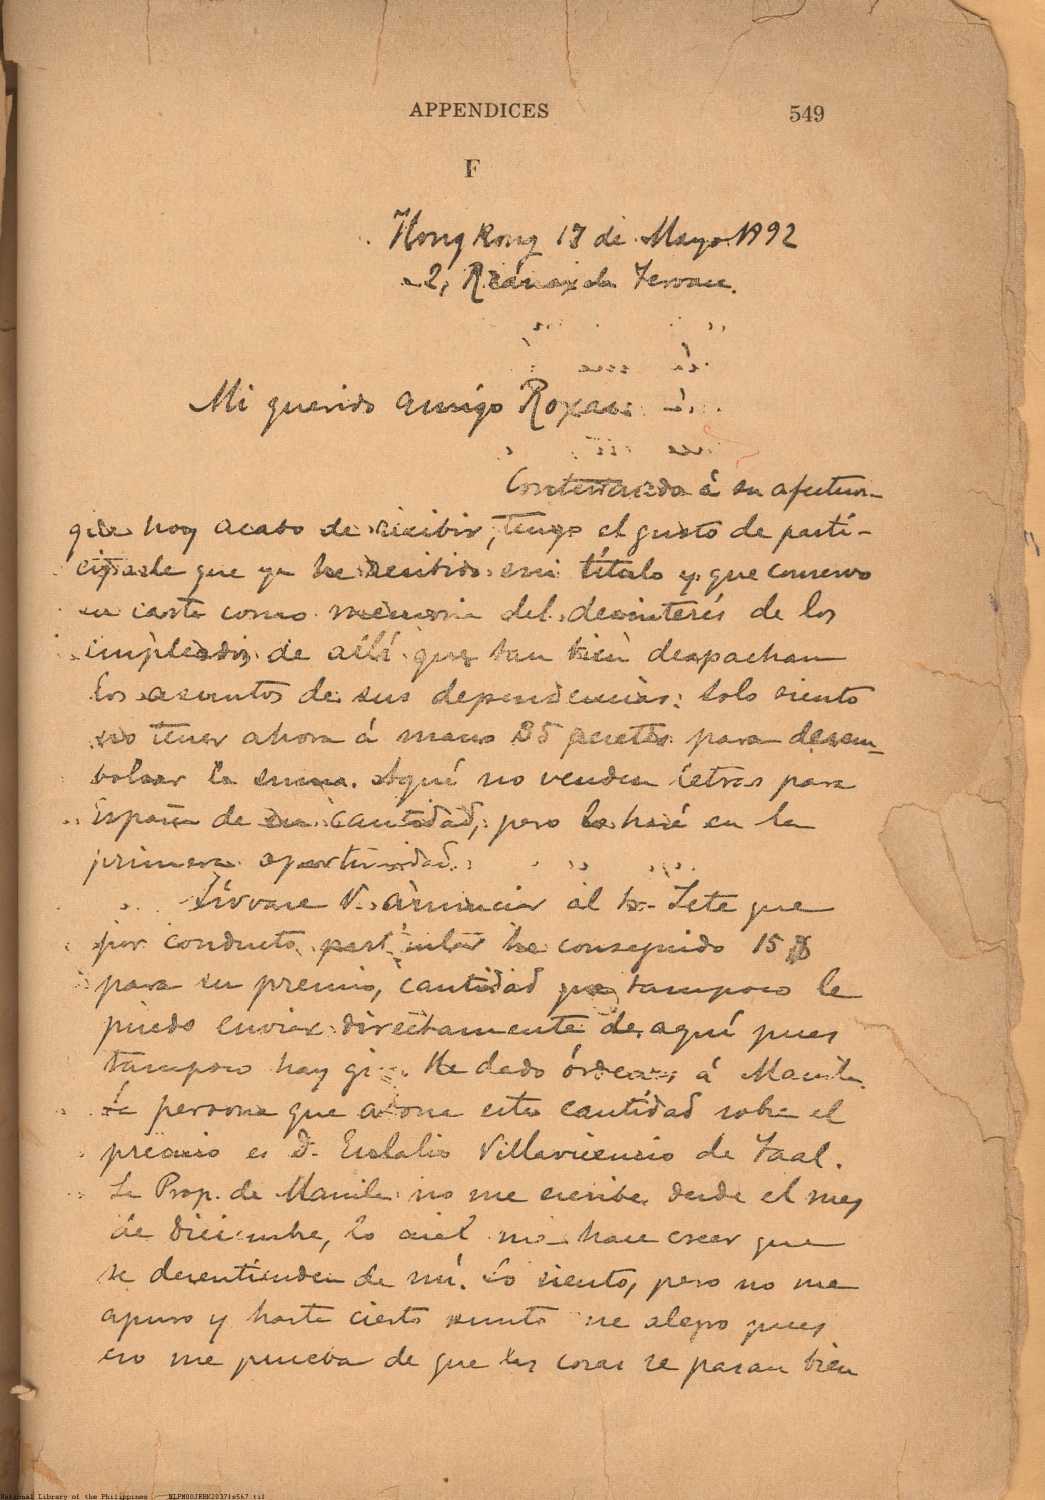 APPENDICES 549
F
Hong Kong 17 de Mayo 1892
2, Rednaxela Terrace.
Mi querido amigo Roxas
Contestando á su afectuosa
que hoy acabo de recibir, tengo el gusto de parti-
ciparle que ya he recibido mi título y que conservo
su carta como memoria del desinterés de los
empleados de allí que tan bien despachan
los asuntos de sus dependencias: solo siento
no tener ahora á mano 35 pesetas para desem-
bolsar la suma. Aquí no venden letras para
España de esa cantidad, pero lo haré en la
primera oportunidad.
Sírvase V. anunciar al Sr. Lete que
por conducto particular he conseguido 15 $
para su premio, cantidad que tampoco le
puedo enviar directamente de aquí pues
tampoco hay giro. He dado órdenes á Manila.
La persona que abona esta cantidad sobre el
premio es D. Eulalio Villavicencio de Taal.
La Prop. de Manila no me escribe desde el mes
de diciembre, lo cual me hace creer que
se desentienden de mí. Lo siento, pero no me
apuro y hasta cierto punto me alegro pues
eso me prueba de que las cosas se pasan bien
National Library of the Philippines